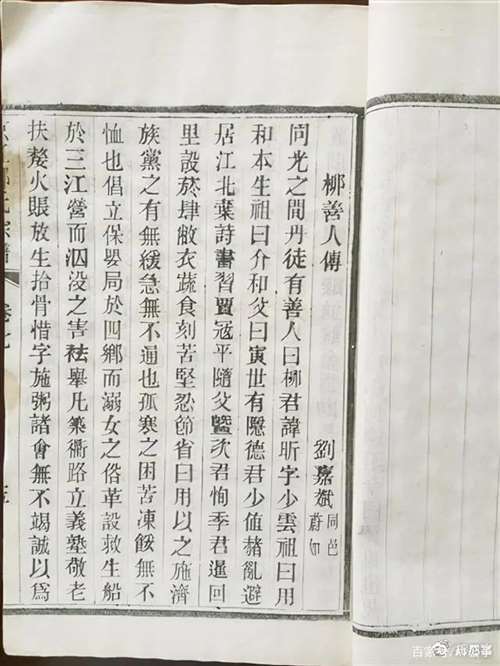 柳善人傳
劉嘉斌 同邑 蔚如
同光之間丹徒有善人曰柳君諱昕字少雲祖曰用
和本生祖曰介和父曰寅世有隱德君少值赭亂避
居江北葉詩書習賈寇平隨父曁次君恂季君暹回
里設菸肆敝衣蔬食刻苦堅忍節省日用以之施濟
族黨之有無緩急無不通也孤寒之困苦凍餒無不
恤也倡立保嬰局於四鄉而溺女之俗革設救生船
於三江營而汩没之害祛舉凡築衢路立義塾敬老
扶嫠火賬放生拾骨惜字施粥諸會無不竭誠以爲
氏宗譜 卷七